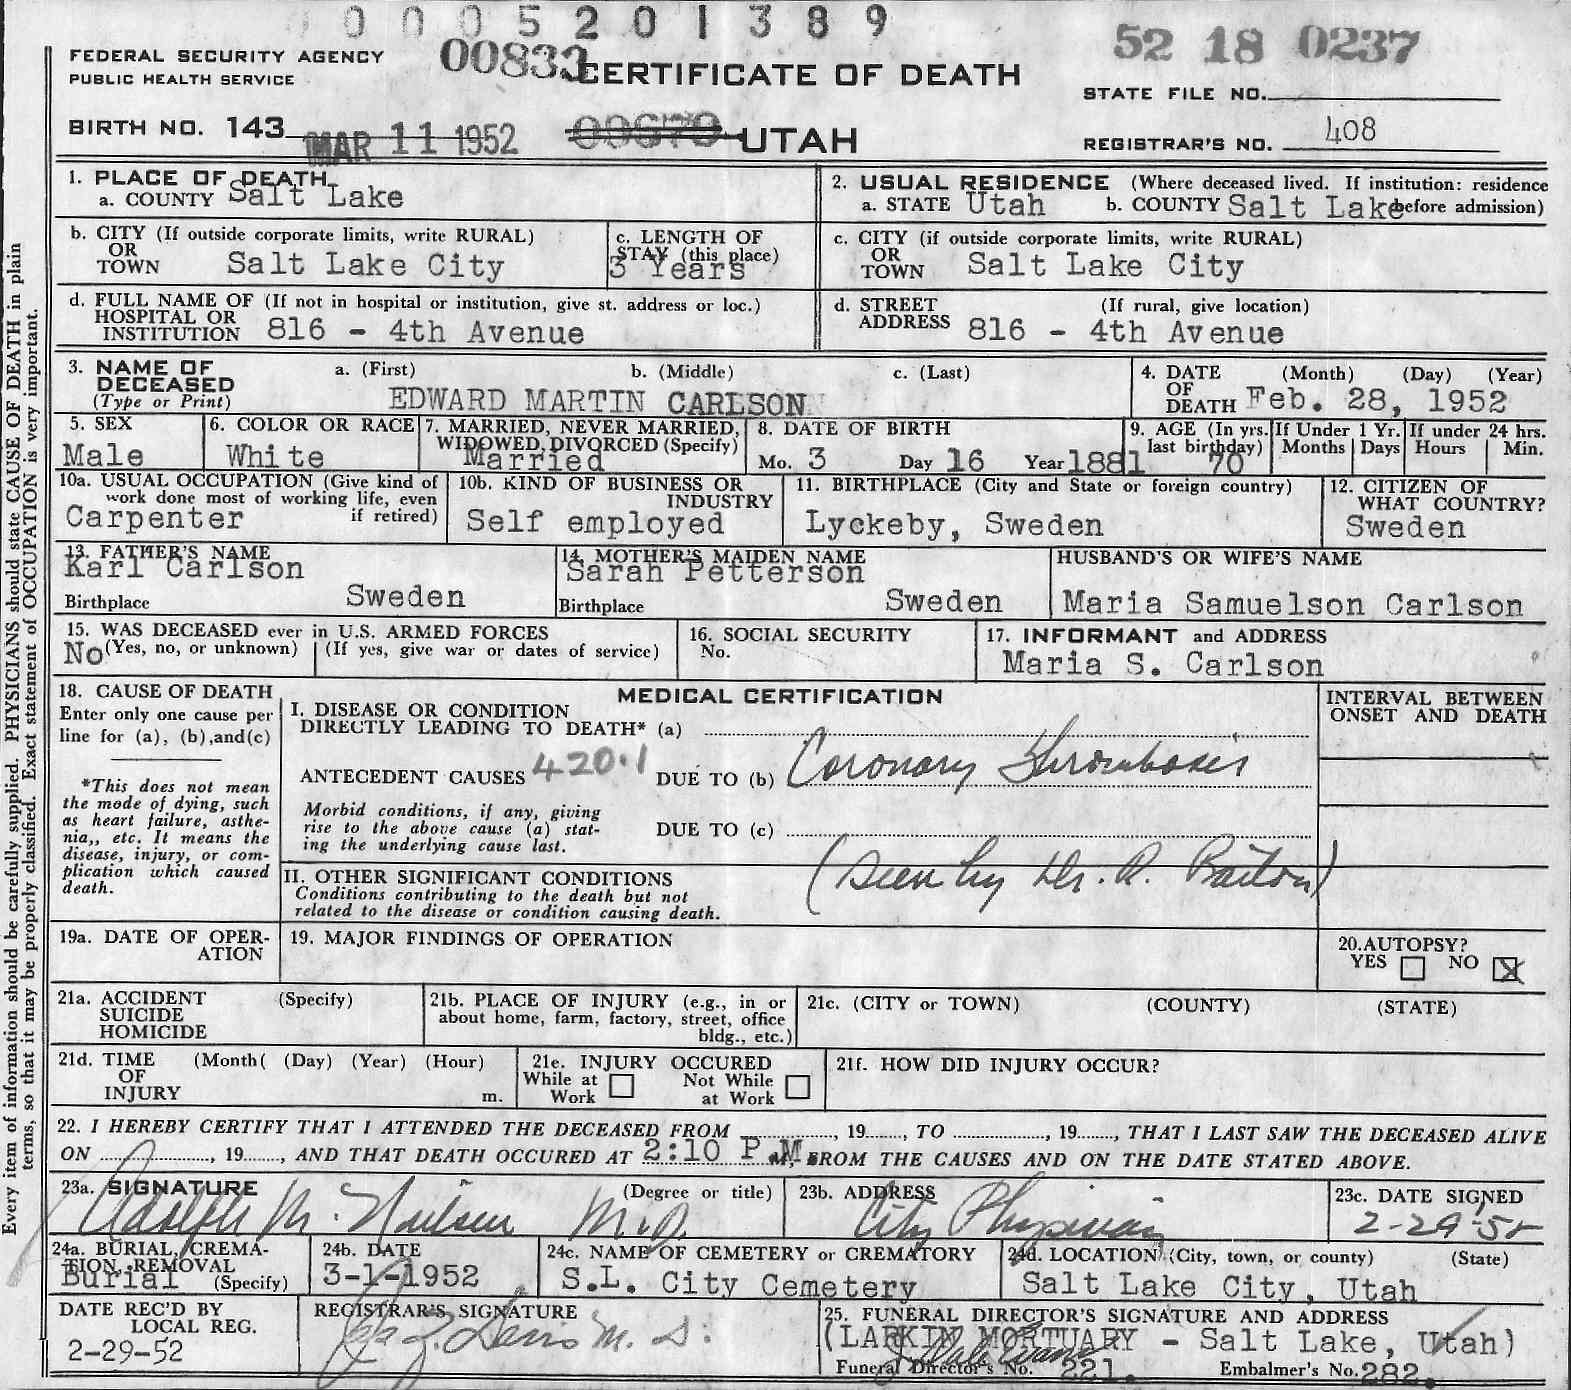 0005201389
FEDERAL SECURITY AGENCY
PUBLIC HEALTH SERVICE
00833 CERTIFICATE OF DEATH
52 18 0237
STATE FILE NO.
BIRTH NO. 143 MAR 11 1952 UTAH
REGISTRAR'S NO. 408
1. PLACE OF DEATH
a. COUNTY Salt Lake
2. USUAL RESIDENCE (Where deceased lived. If institution: residence before admission)
a. STATE Utah b. COUNTY Salt Lake
b. CITY (If outside corporate limits, write RURAL)
OR
TOWN Salt Lake City
c. LENGTH OF
STAY (this place)
3 Years
c. CITY (if outside corporate limits, write RURAL)
OR
TOWN Salt Lake City
d. FULL NAME OF (If not in hospital or institution, give st. address or loc.)
HOSPITAL OR
INSTITUTION 816 - 4th Avenue
d. STREET (If rural, give location)
ADDRESS 816 - 4th Avenue
3. NAME OF DECEASED
(Type or Print)
a. (First) b. (Middle) c. (Last)
EDWARD MARTIN CARLSON
4. DATE (Month) (Day) (Year)
OF
DEATH Feb. 28, 1952
5. SEX
Male
6. COLOR OR RACE
White
7. MARRIED, NEVER MARRIED,
WIDOWED, DIVORCED (Specify)
Married
8. DATE OF BIRTH
Mo. 3 Day 16 Year 1881
9. AGE (In yrs. last birthday)
70
If Under 1 Yr.
Months Days
If under 24 hrs.
Hours Min.
10a. USUAL OCCUPATION (Give kind of
work done most of working life, even
if retired)
Carpenter
10b. KIND OF BUSINESS OR
INDUSTRY
Self employed
11. BIRTHPLACE (City and State or foreign country)
Lyckeby, Sweden
12. CITIZEN OF
WHAT COUNTRY?
Sweden
13. FATHER'S NAME
Karl Carlson
Birthplace Sweden
14. MOTHER'S MAIDEN NAME
Sarah Petterson
Birthplace Sweden
HUSBAND'S OR WIFE'S NAME
Maria Samuelson Carlson
15. WAS DECEASED ever in U.S. ARMED FORCES
No (Yes, no, or unknown) (If yes, give war or dates of service)
16. SOCIAL SECURITY
No.
17. INFORMANT and ADDRESS
Maria S. Carlson
18. CAUSE OF DEATH
Enter only one cause per
line for (a), (b),and(c)
*This does not mean
the mode of dying, such
as heart failure, asthe-
nia,, etc. It means the
disease, injury, or com-
plication which caused
death.
MEDICAL CERTIFICATION
I. DISEASE OR CONDITION
DIRECTLY LEADING TO DEATH* (a)
ANTECEDENT CAUSES 420.1 DUE TO (b) Coronary Thrombosis
Morbid conditions, if any, giving
rise to the above cause (a) stat-
ing the underlying cause last.
DUE TO (c)
II. OTHER SIGNIFICANT CONDITIONS
Conditions contributing to the death but not
related to the disease or condition causing death.
(Seen by Dr. R. Barton)
INTERVAL BETWEEN
ONSET AND DEATH
19a. DATE OF OPER-
ATION
19. MAJOR FINDINGS OF OPERATION
20. AUTOPSY?
YES NO X
21a. ACCIDENT (Specify)
SUICIDE
HOMICIDE
21b. PLACE OF INJURY (e.g., in or
about home, farm, factory, street, office
bldg., etc.)
21c. (CITY or TOWN) (COUNTY) (STATE)
21d. TIME (Month( (Day) (Year) (Hour)
OF
INJURY m.
21e. INJURY OCCURED
While at Work Not While at Work
21f. HOW DID INJURY OCCUR?
22. I HEREBY CERTIFY THAT I ATTENDED THE DECEASED FROM , 19 , TO , 19 , THAT I LAST SAW THE DECEASED ALIVE
ON , 19 , AND THAT DEATH OCCURED AT 2:10 P.M. FROM THE CAUSES AND ON THE DATE STATED ABOVE.
23a. SIGNATURE (Degree or title)
Adolph M. Nielsen M.D.
23b. ADDRESS
City Physician
23c. DATE SIGNED
2-29-52
24a. BURIAL, CREMA-
TION, REMOVAL
Burial (Specify)
24b. DATE
3-1-1952
24c. NAME OF CEMETERY or CREMATORY
S.L. City Cemetery
24d. LOCATION (City, town, or county) (State)
Salt Lake City, Utah
DATE REC'D BY
LOCAL REG.
2-29-52
REGISTRAR'S SIGNATURE
M. D.
25. FUNERAL DIRECTOR'S SIGNATURE AND ADDRESS
(LARKIN MORTUARY - Salt Lake, Utah)
Funeral Director's No. 221. Embalmer's No. 282.
Every item of information should be carefully supplied. PHYSICIANS should state CAUSE OF DEATH in plain
terms, so that it may be properly classified. Exact statement of OCCUPATION is very important.